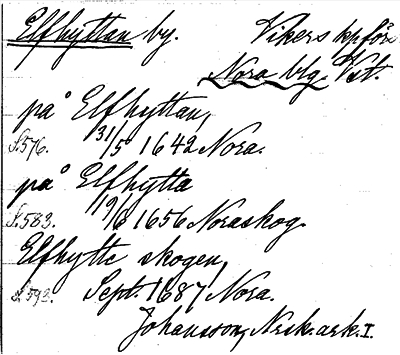 Elfhyttan by. Vikers kpförs.
Nora blg. Vst.
på Elfhyttan,
S. 576. 31/5 1642 Nora.
på Elfhytta
S. 583. 19/6 1656 Noraskog.
Elfhytte skogen,
S. 593. Sept. 1687 Nora.
Johansson, Nosk. ark. I.